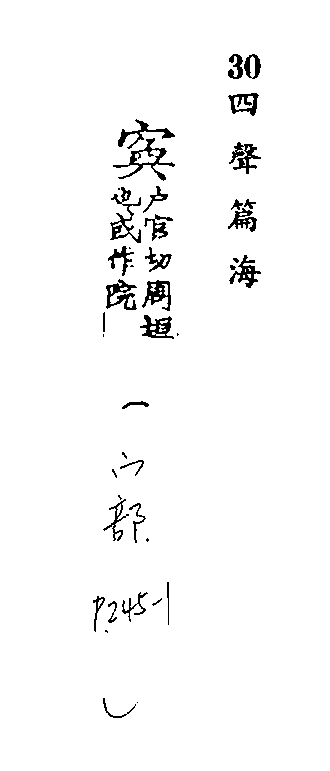 30四聲篇海
寏
户官切周垣
也或作院
(宀部. P.245-1)